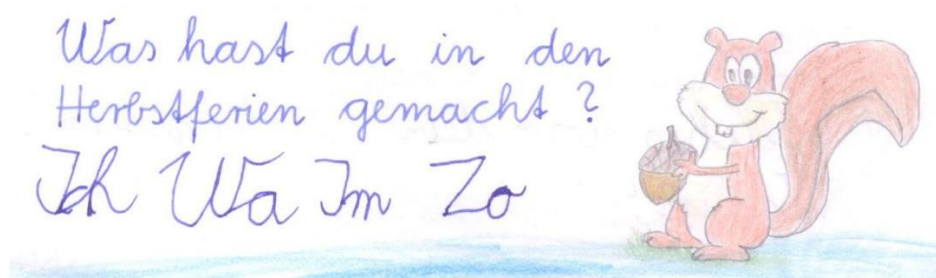 Was hast du in den
Herbstferien gemacht ?
Ich Wa Im Zo